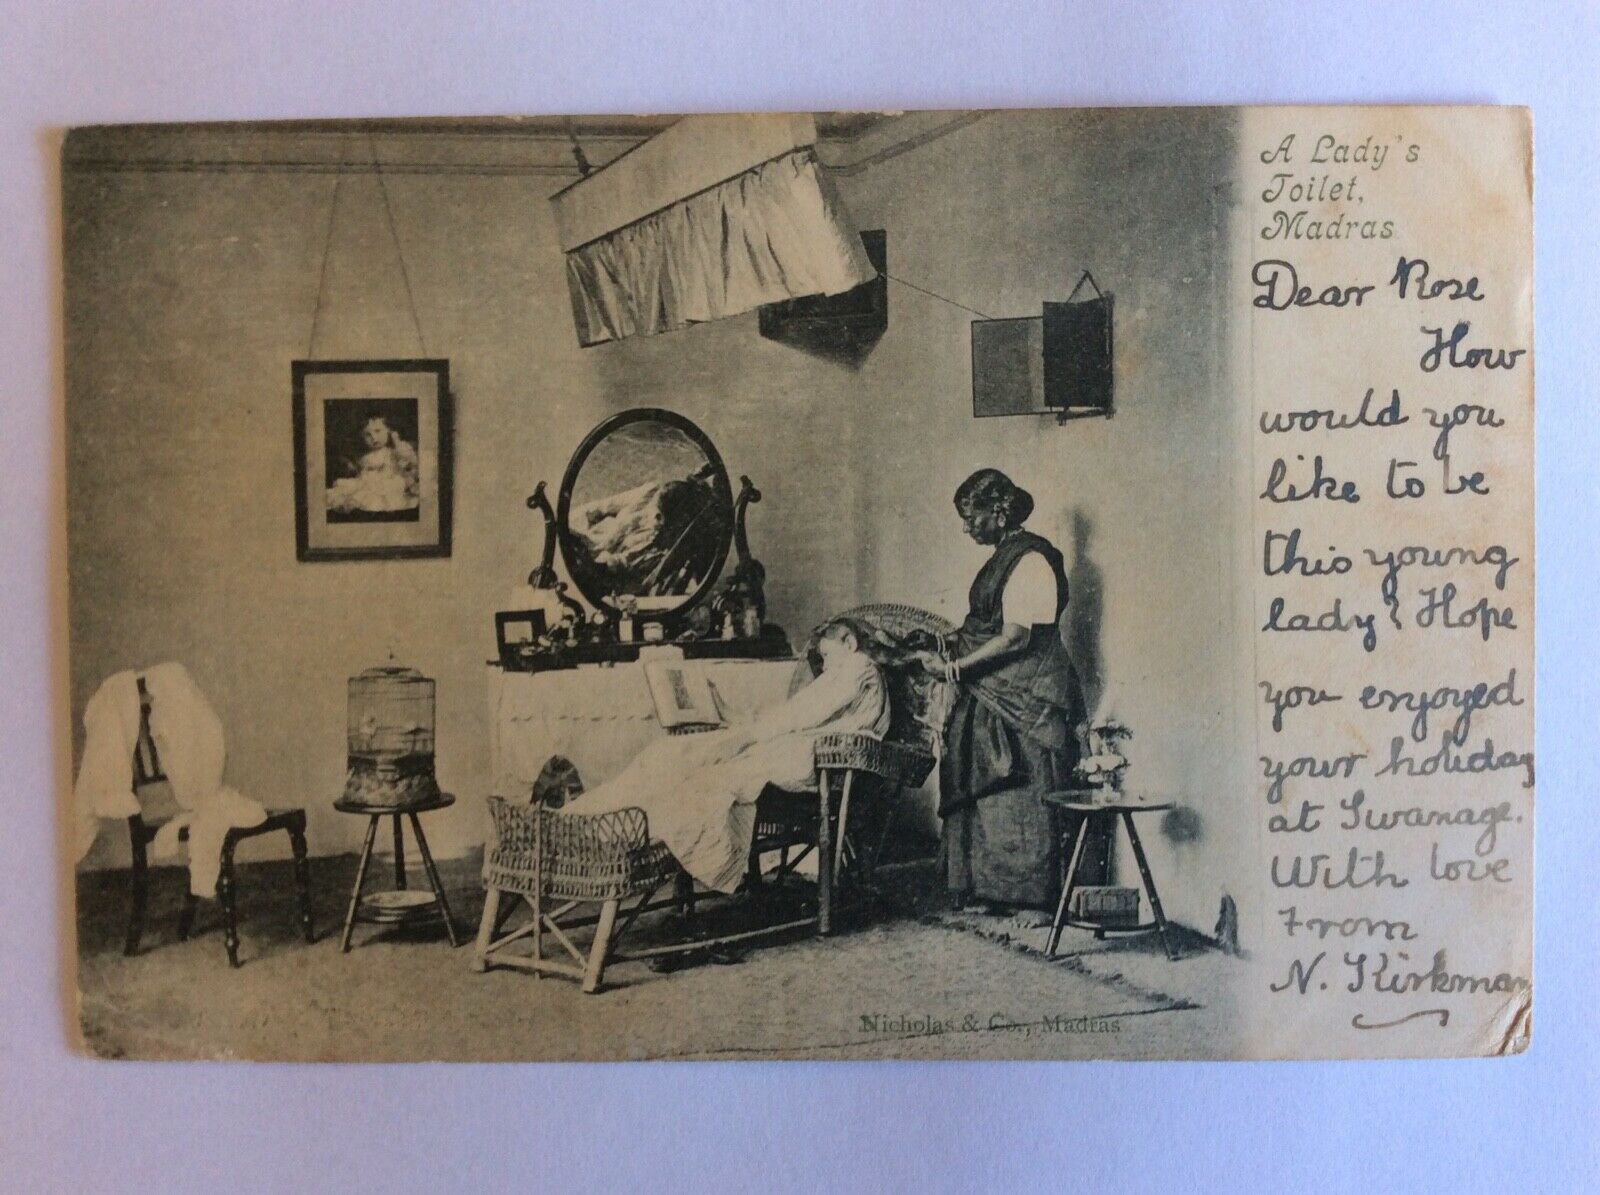 A Lady's
Toilet,
Madras
Dear Rose
How
would you
like to be
this young
lady? Hope
you enjoyed
your holiday
at Swanage.
With love
From
N. Kirkman
Nicholas & Co., Madras